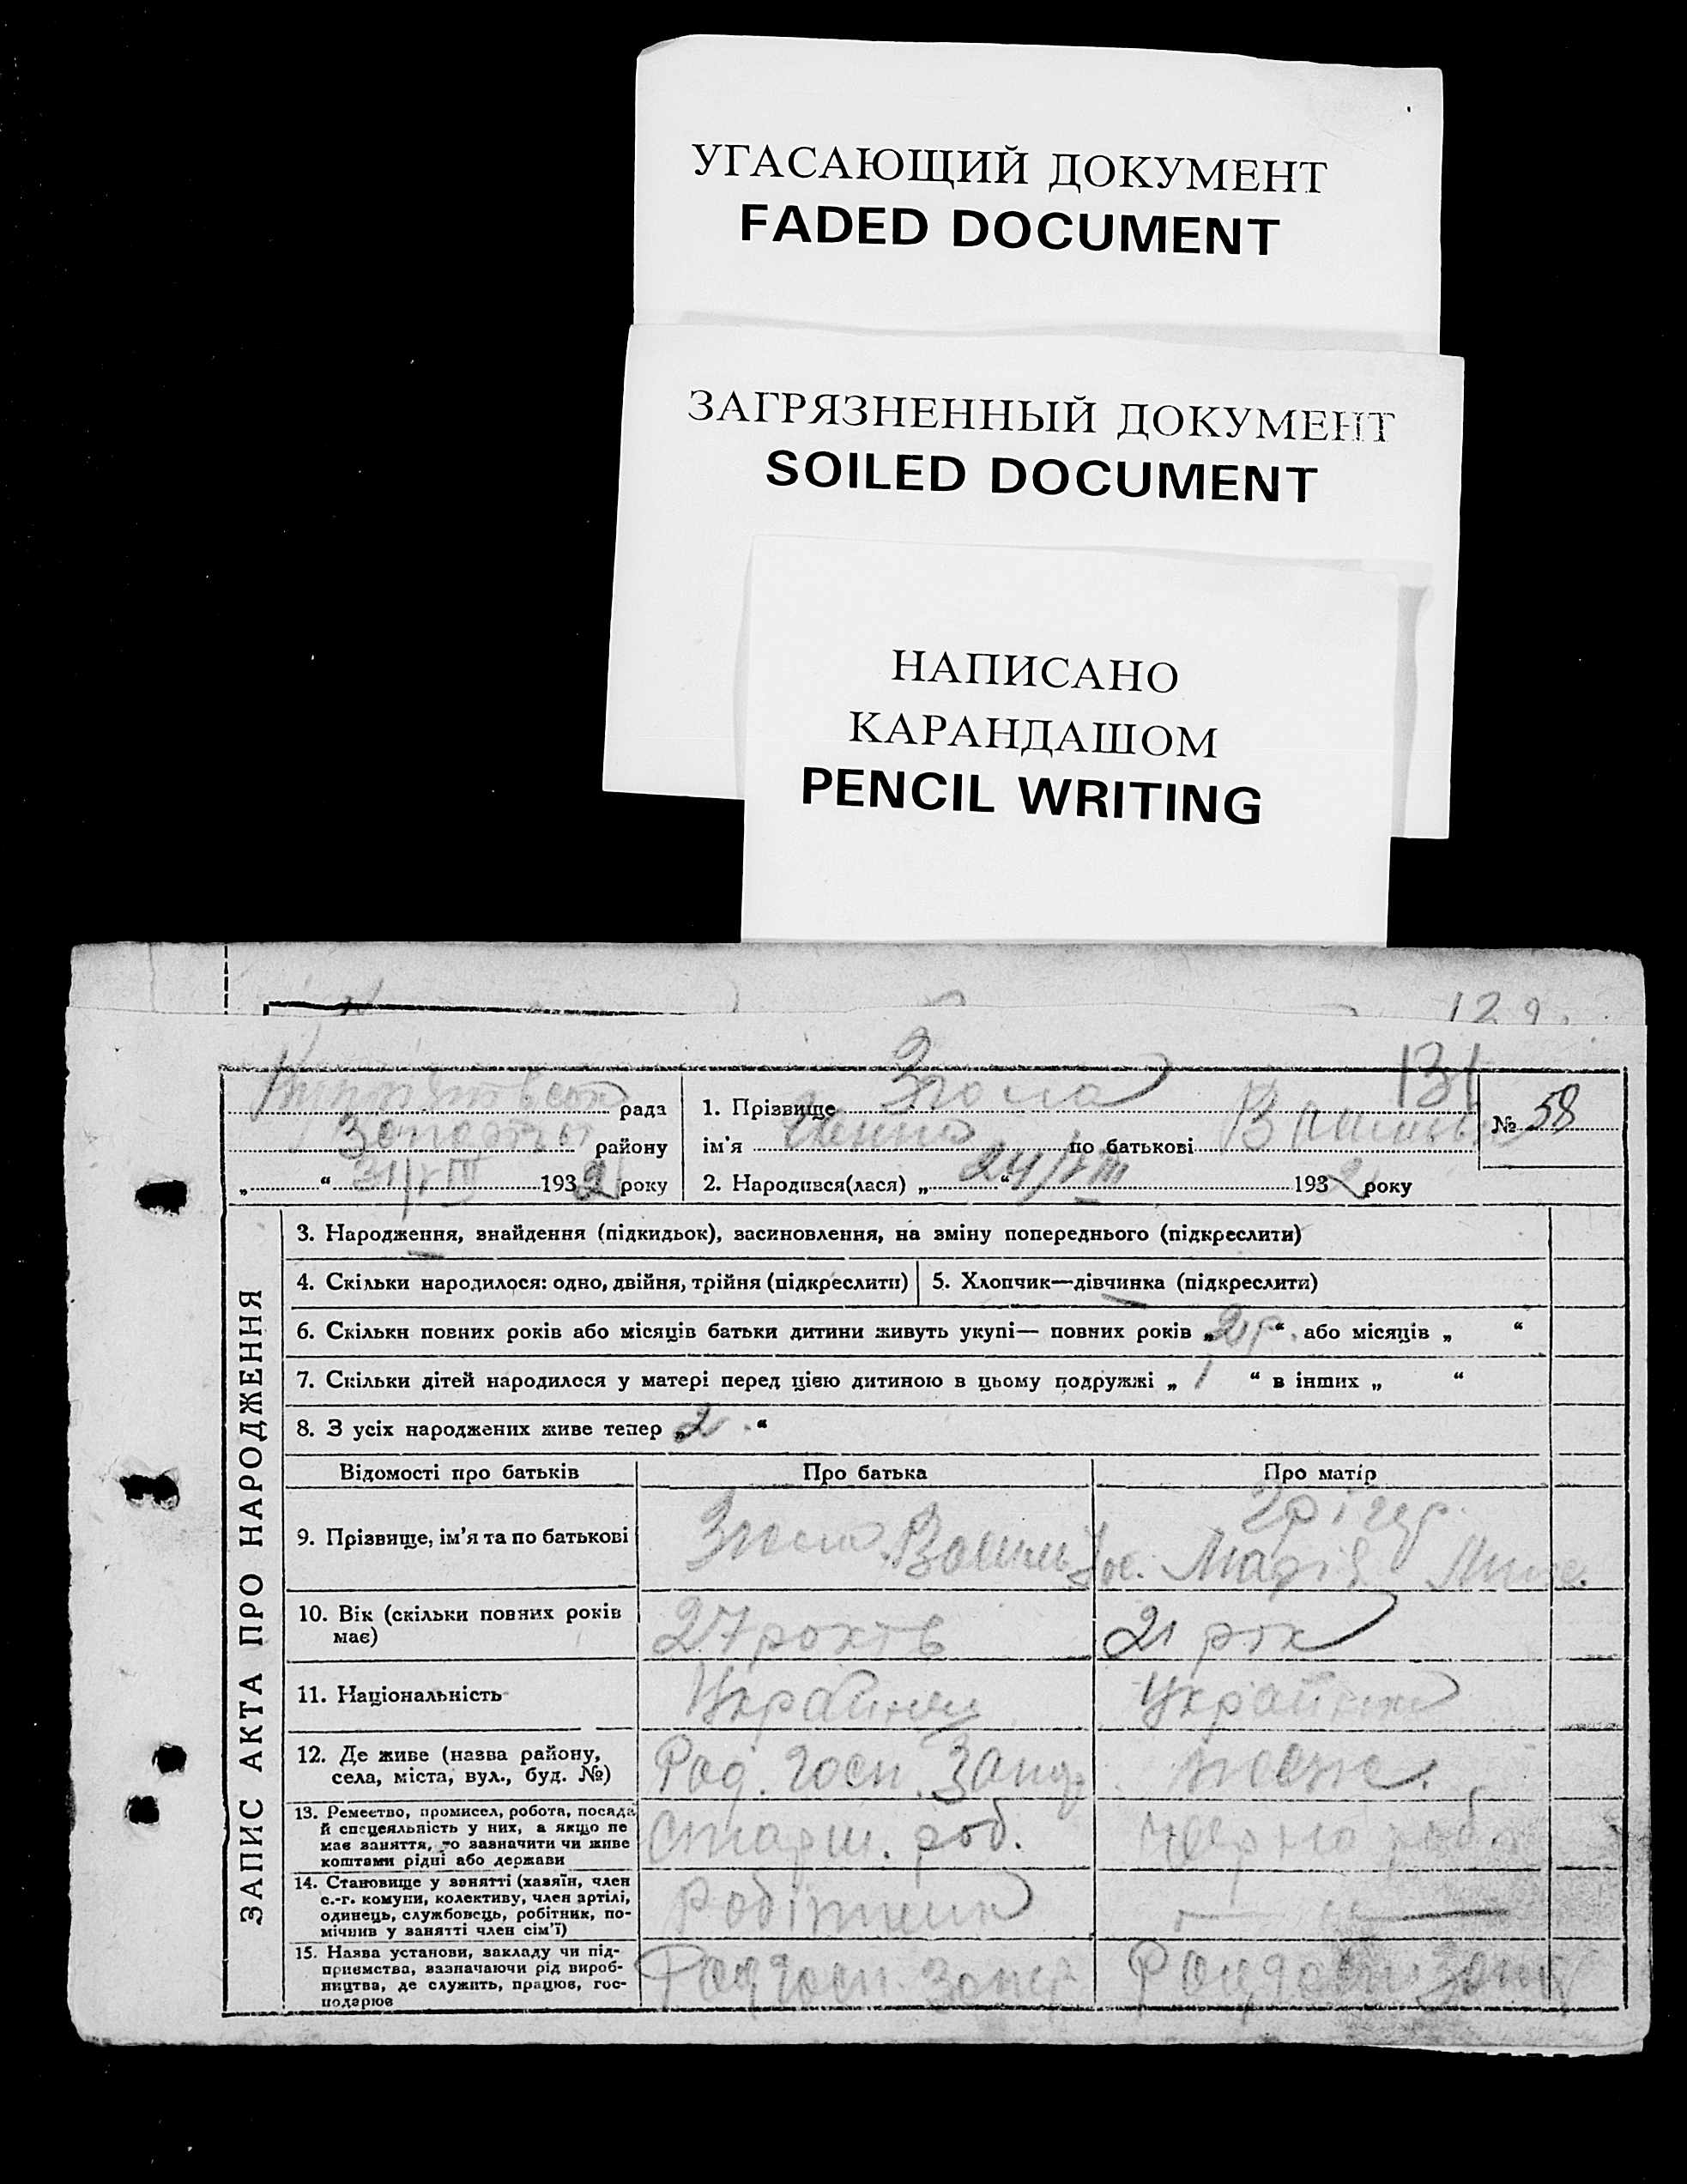 УГАСАЮЩИЙ ДОКУМЕНТ
FADED DOCUMENT
ЗАГРЯЗНЕННЫЙ ДОКУМЕНТ
SOILED DOCUMENT
НАПИСАНО
КАРАНДАШОМ
PENCIL WRITING
129
131
рада
району
„ “ 31/VIII 1932 року
1. Прізвище Згола
ім'я по батькові
2. Народився(лася) „ “ 24/VIII 1932 року
№ 58
ЗАПИС АКТА ПРО НАРОДЖЕННЯ
3. Народження, знайдення (підкидьок), засиновлення, на зміну попереднього (підкреслити)
4. Скільки народилося: одно, двійня, трійня (підкреслити)
5. Хлопчик—дівчинка (підкреслити)
6. Скільки повних років або місяців батьки дитини живуть укупі— повних років „2 р“. або місяців „ “
7. Скільки дітей народилося у матері перед цією дитиною в цьому подружжі „ 1 “ в інших „ “
8. З усіх народжених живе тепер „2.“
Відомості про батьків
Про батька
Про матір
9. Прізвище, ім'я та по батькові
Згола
Марія
10. Вік (скільки повних років має)
27 років
21 рік
11. Національність
Українец
Українка
12. Де живе (назва району, села, міста, вул., буд. №)
Рад. госп.
13. Ремество, промисел, робота, посада й спеціяльність у них, а якщо не має заняття, то зазначити чи живе коштами рідні або держави
старш. роб.
14. Становище у занятті (хазяїн, член с.-г. комуни, колективу, член артілі, одинець, службовець, робітник, помічнив у занятті член сім'ї)
Робітник
— " —
15. Назва установи, закладу чи підприємства, зазначаючи рід виробництва, де служить, працює, господарює
Рад госп.
Рад госп.